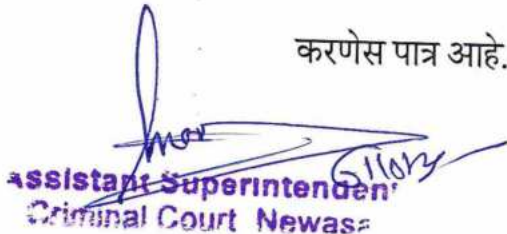 करणेस पात्र आहे.
Assistant Superintendent
Criminal Court Newasa